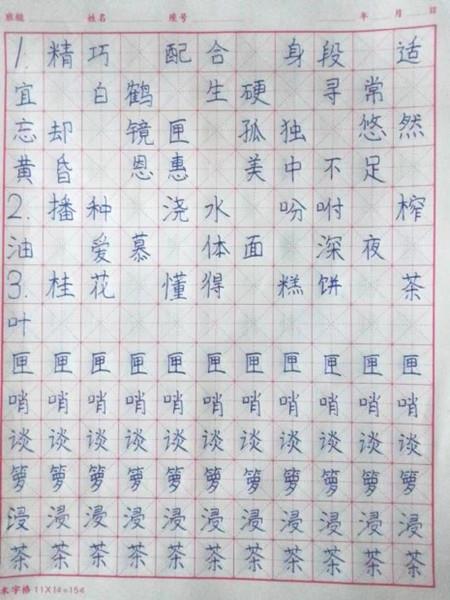 班级 姓名 座号 年 月 日
1. 精巧 配合 身段 适
宜 白鹤 生硬 寻常
忘却 镜匣 孤独 悠然
黄昏 恩惠 美中不足
2. 播种 浇水 吩咐 榨
油 爱慕 体面 深夜
3. 桂花 懂得 糕饼 茶
叶
匣匣匣匣匣匣匣匣匣匣匣
哨哨哨哨哨哨哨哨哨哨哨
谈谈谈谈谈谈谈谈谈谈谈
箩箩箩箩箩箩箩箩箩箩箩
浸浸浸浸浸浸浸浸浸浸浸
茶茶茶茶茶茶茶茶茶茶茶
米字格 11X14=154